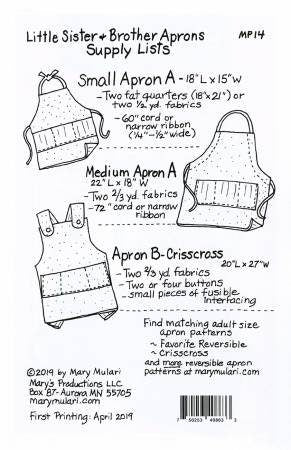 Little Sister & Brother Aprons
Supply Lists
MP14
Small Apron A - 18"L x 15"W
- Two fat quarters (18"x21") or
two 1/2 yd. fabrics
- 60" cord or
narrow ribbon
(1/4"-1/2" wide)
Medium Apron A
22"L x 18"W
- Two 2/3 yd. fabrics
- 72" cord or narrow
ribbon
Apron B-Crisscross
20"L x 27"W
- Two 2/3 yd. fabrics
- Two or four buttons
- small pieces of fusible
interfacing
Find matching adult size
apron patterns
~ Favorite Reversible
~ Crisscross
and more reversible apron
patterns at marymulari.com
©2019 by Mary Mulari
Mary's Productions LLC
Box 87-Aurora MN 55705
marymulari.com
First Printing: April 2019